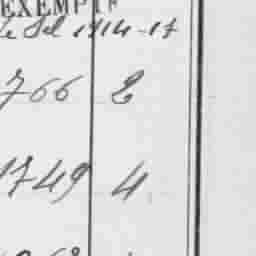 EXEMPTE
le Sel 1914-17
766 2
1749 4